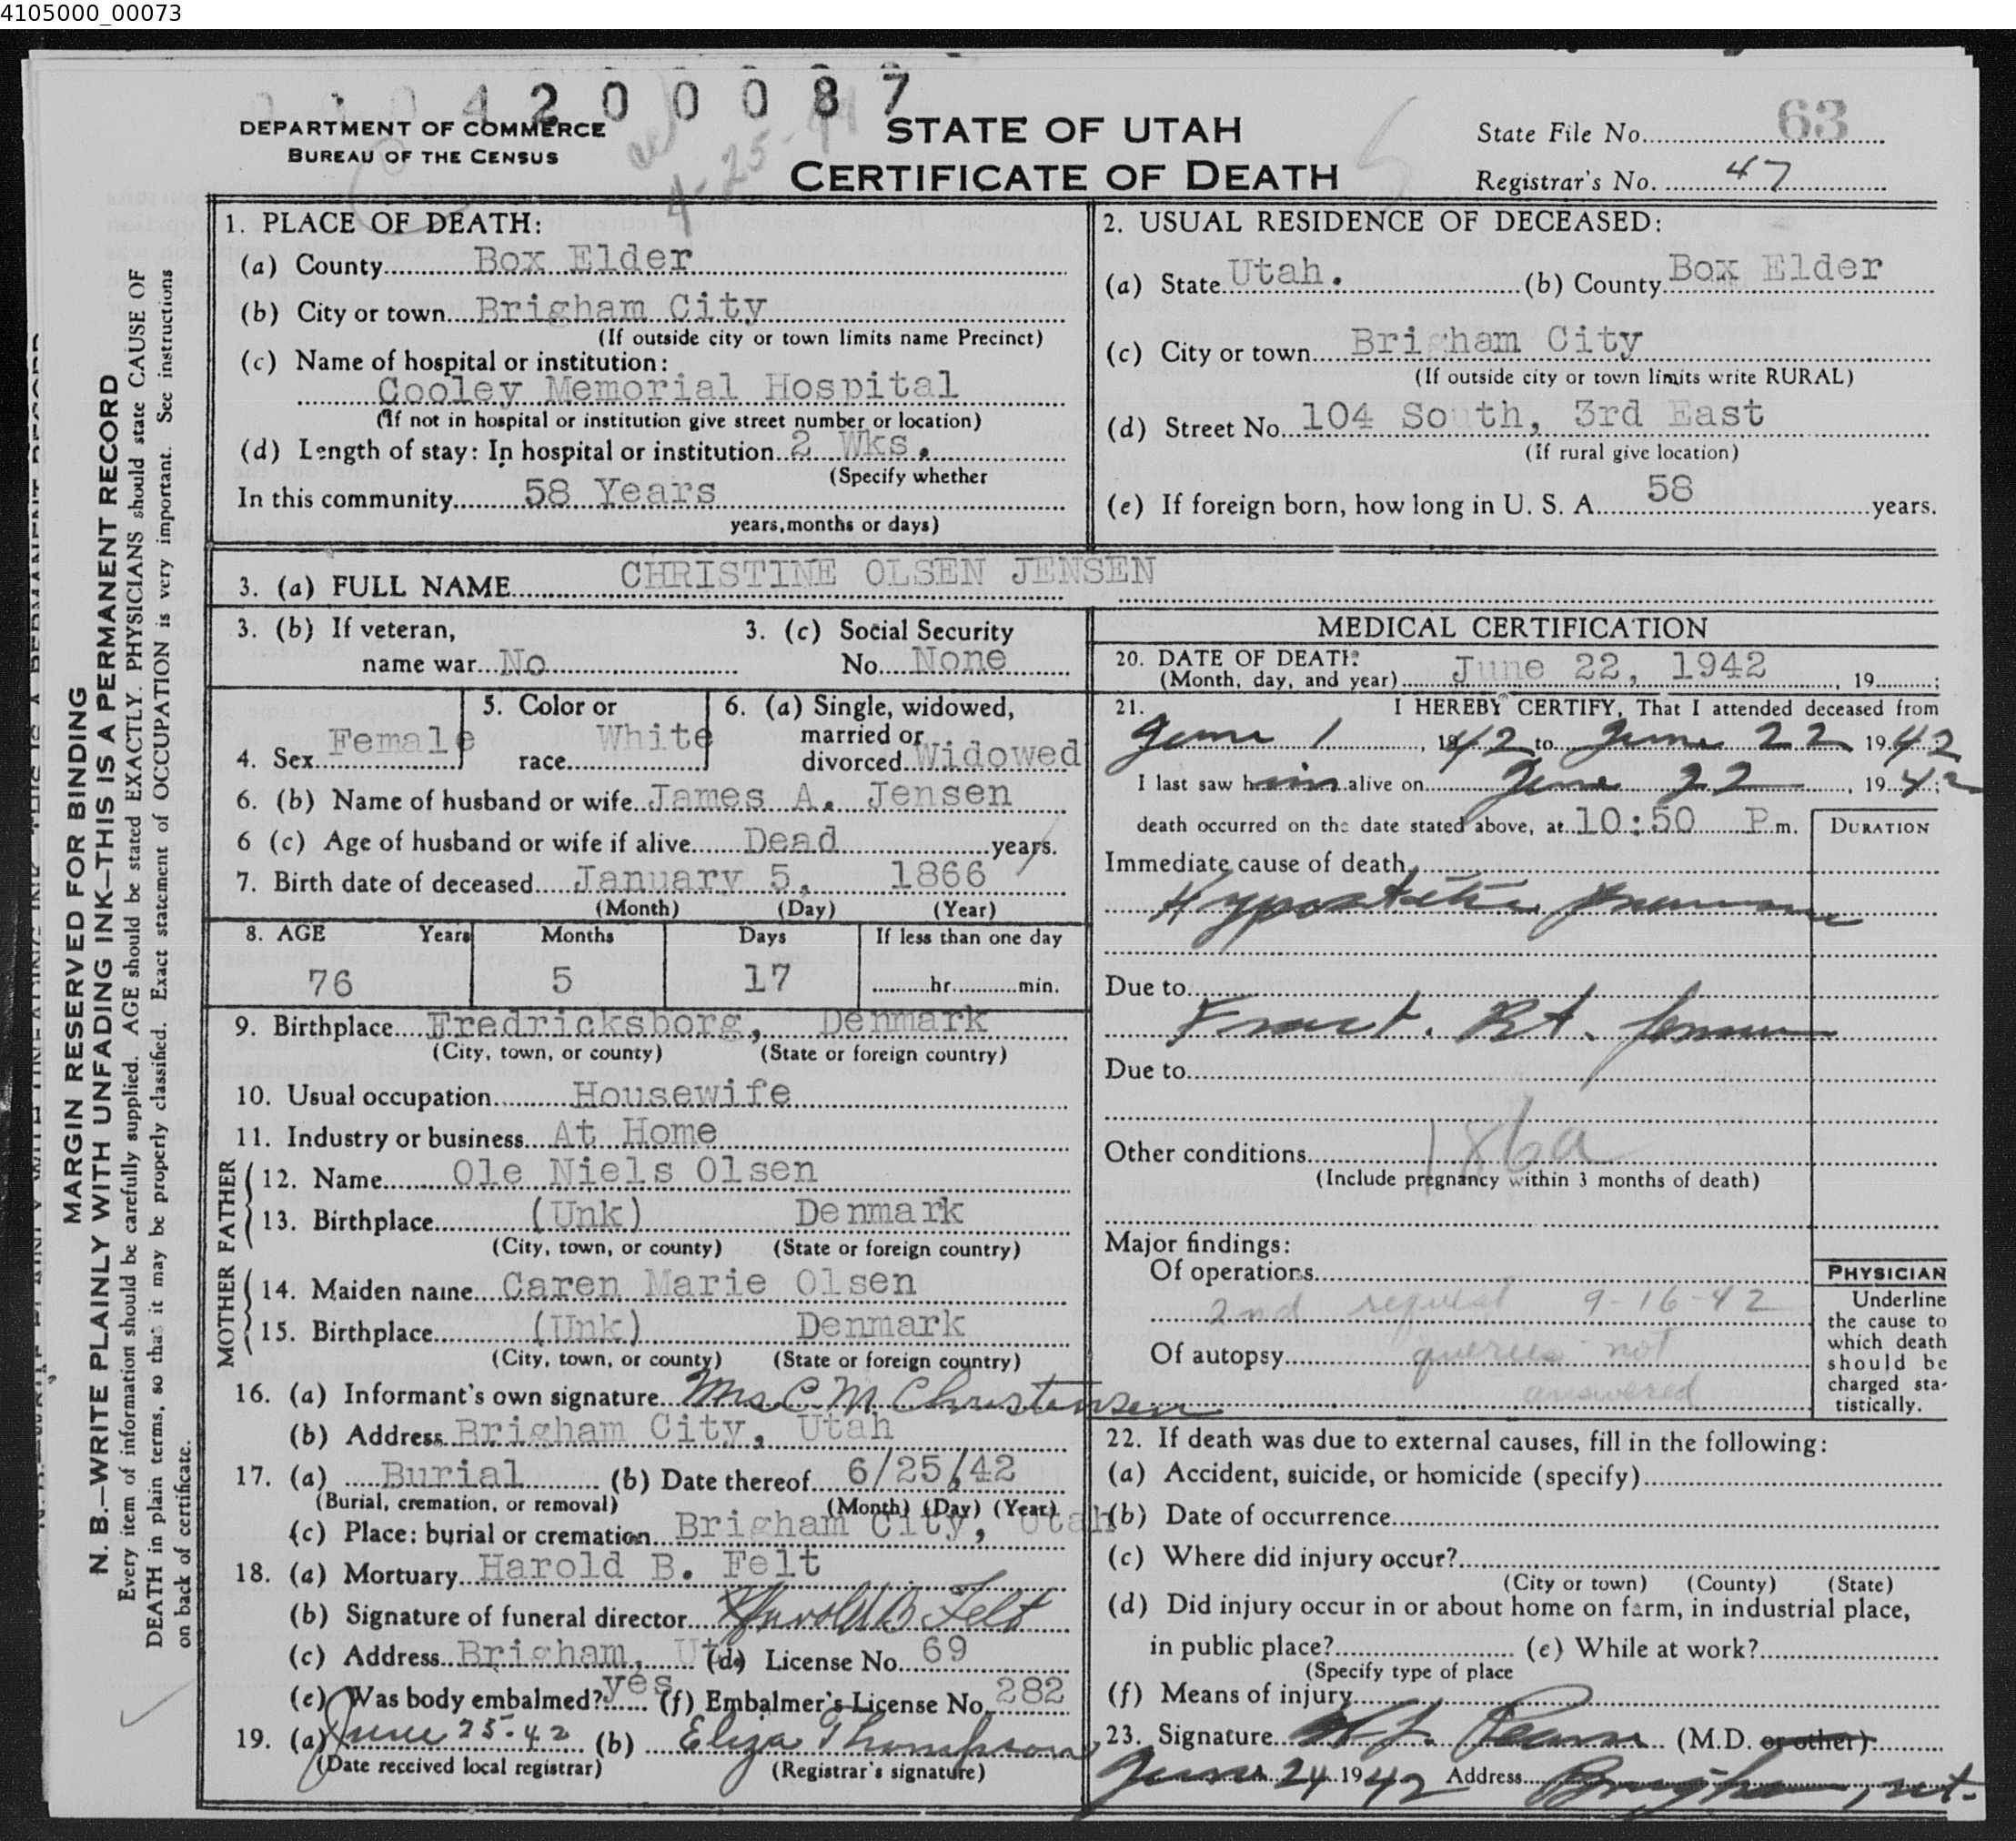 4105000_00073
4200087
DEPARTMENT OF COMMERCE
BUREAU OF THE CENSUS
4-25-44
STATE OF UTAH
CERTIFICATE OF DEATH
State File No. 63
Registrar's No. 47
MARGIN RESERVED FOR BINDING
N. B.—WRITE PLAINLY WITH UNFADING INK—THIS IS A PERMANENT RECORD
Every item of information should be carefully supplied. AGE should be stated EXACTLY. PHYSICIANS should state CAUSE OF
DEATH in plain terms, so that it may be properly classified. Exact statement of OCCUPATION is very important. See instructions
on back of certificate.
1. PLACE OF DEATH:
(a) County Box Elder
(b) City or town Brigham City
(If outside city or town limits name Precinct)
(c) Name of hospital or institution:
Cooley Memorial Hospital
(If not in hospital or institution give street number or location)
(d) Length of stay: In hospital or institution 2 Wks.
(Specify whether
In this community 58 Years
years, months or days)
2. USUAL RESIDENCE OF DECEASED:
(a) State Utah. (b) County Box Elder
(c) City or town Brigham City
(If outside city or town limits write RURAL)
(d) Street No. 104 South, 3rd East
(If rural give location)
(e) If foreign born, how long in U. S. A. 58 years.
3. (a) FULL NAME CHRISTINE OLSEN JENSEN
3. (b) If veteran,
name war No
3. (c) Social Security
No. None
4. Sex Female
5. Color or
race White
6. (a) Single, widowed,
married or
divorced Widowed
6. (b) Name of husband or wife James A. Jensen
6 (c) Age of husband or wife if alive Dead years.
7. Birth date of deceased January 5, 1866
(Month) (Day) (Year)
8. AGE Years Months Days If less than one day
76 5 17 hr. min.
9. Birthplace Fredricksborg, Denmark
(City, town, or county) (State or foreign country)
10. Usual occupation Housewife
11. Industry or business At Home
FATHER
12. Name Ole Niels Olsen
13. Birthplace (Unk) Denmark
(City, town, or county) (State or foreign country)
MOTHER
14. Maiden name Caren Marie Olsen
15. Birthplace (Unk) Denmark
(City, town, or county) (State or foreign country)
16. (a) Informant's own signature Mrs C M Christensen
(b) Address Brigham City, Utah
17. (a) Burial (b) Date thereof 6/25/42
(Burial, cremation, or removal) (Month) (Day) (Year)
(c) Place: burial or cremation Brigham City, Utah
18. (a) Mortuary Harold B. Felt
(b) Signature of funeral director Harold B Felt
(c) Address Brigham, Ut. (d) License No. 69
(e) Was body embalmed? yes (f) Embalmer's License No. 282
19. (a) June 25-42 (b) Eliza Thompson
(Date received local registrar) (Registrar's signature)
MEDICAL CERTIFICATION
20. DATE OF DEATH:
(Month, day, and year) June 22, 1942, 19 ;
21. I HEREBY CERTIFY, That I attended deceased from
June 1, 1942 to June 22 1942
I last saw him alive on June 22, 1942;
death occurred on the date stated above, at 10:50 P m.
DURATION
Immediate cause of death
Hypostatic pneumonia
Due to
Fract. Rt. femur
Due to
Other conditions 186a
(Include pregnancy within 3 months of death)
Major findings:
Of operations
2nd request 9-16-42
Of autopsy queries not
answered
PHYSICIAN
Underline
the cause to
which death
should be
charged sta-
tistically.
22. If death was due to external causes, fill in the following:
(a) Accident, suicide, or homicide (specify)
(b) Date of occurrence
(c) Where did injury occur?
(City or town) (County) (State)
(d) Did injury occur in or about home on farm, in industrial place,
in public place? (e) While at work?
(Specify type of place
(f) Means of injury
23. Signature (M.D. or other)
June 24 1942 Address Brigham, ut.